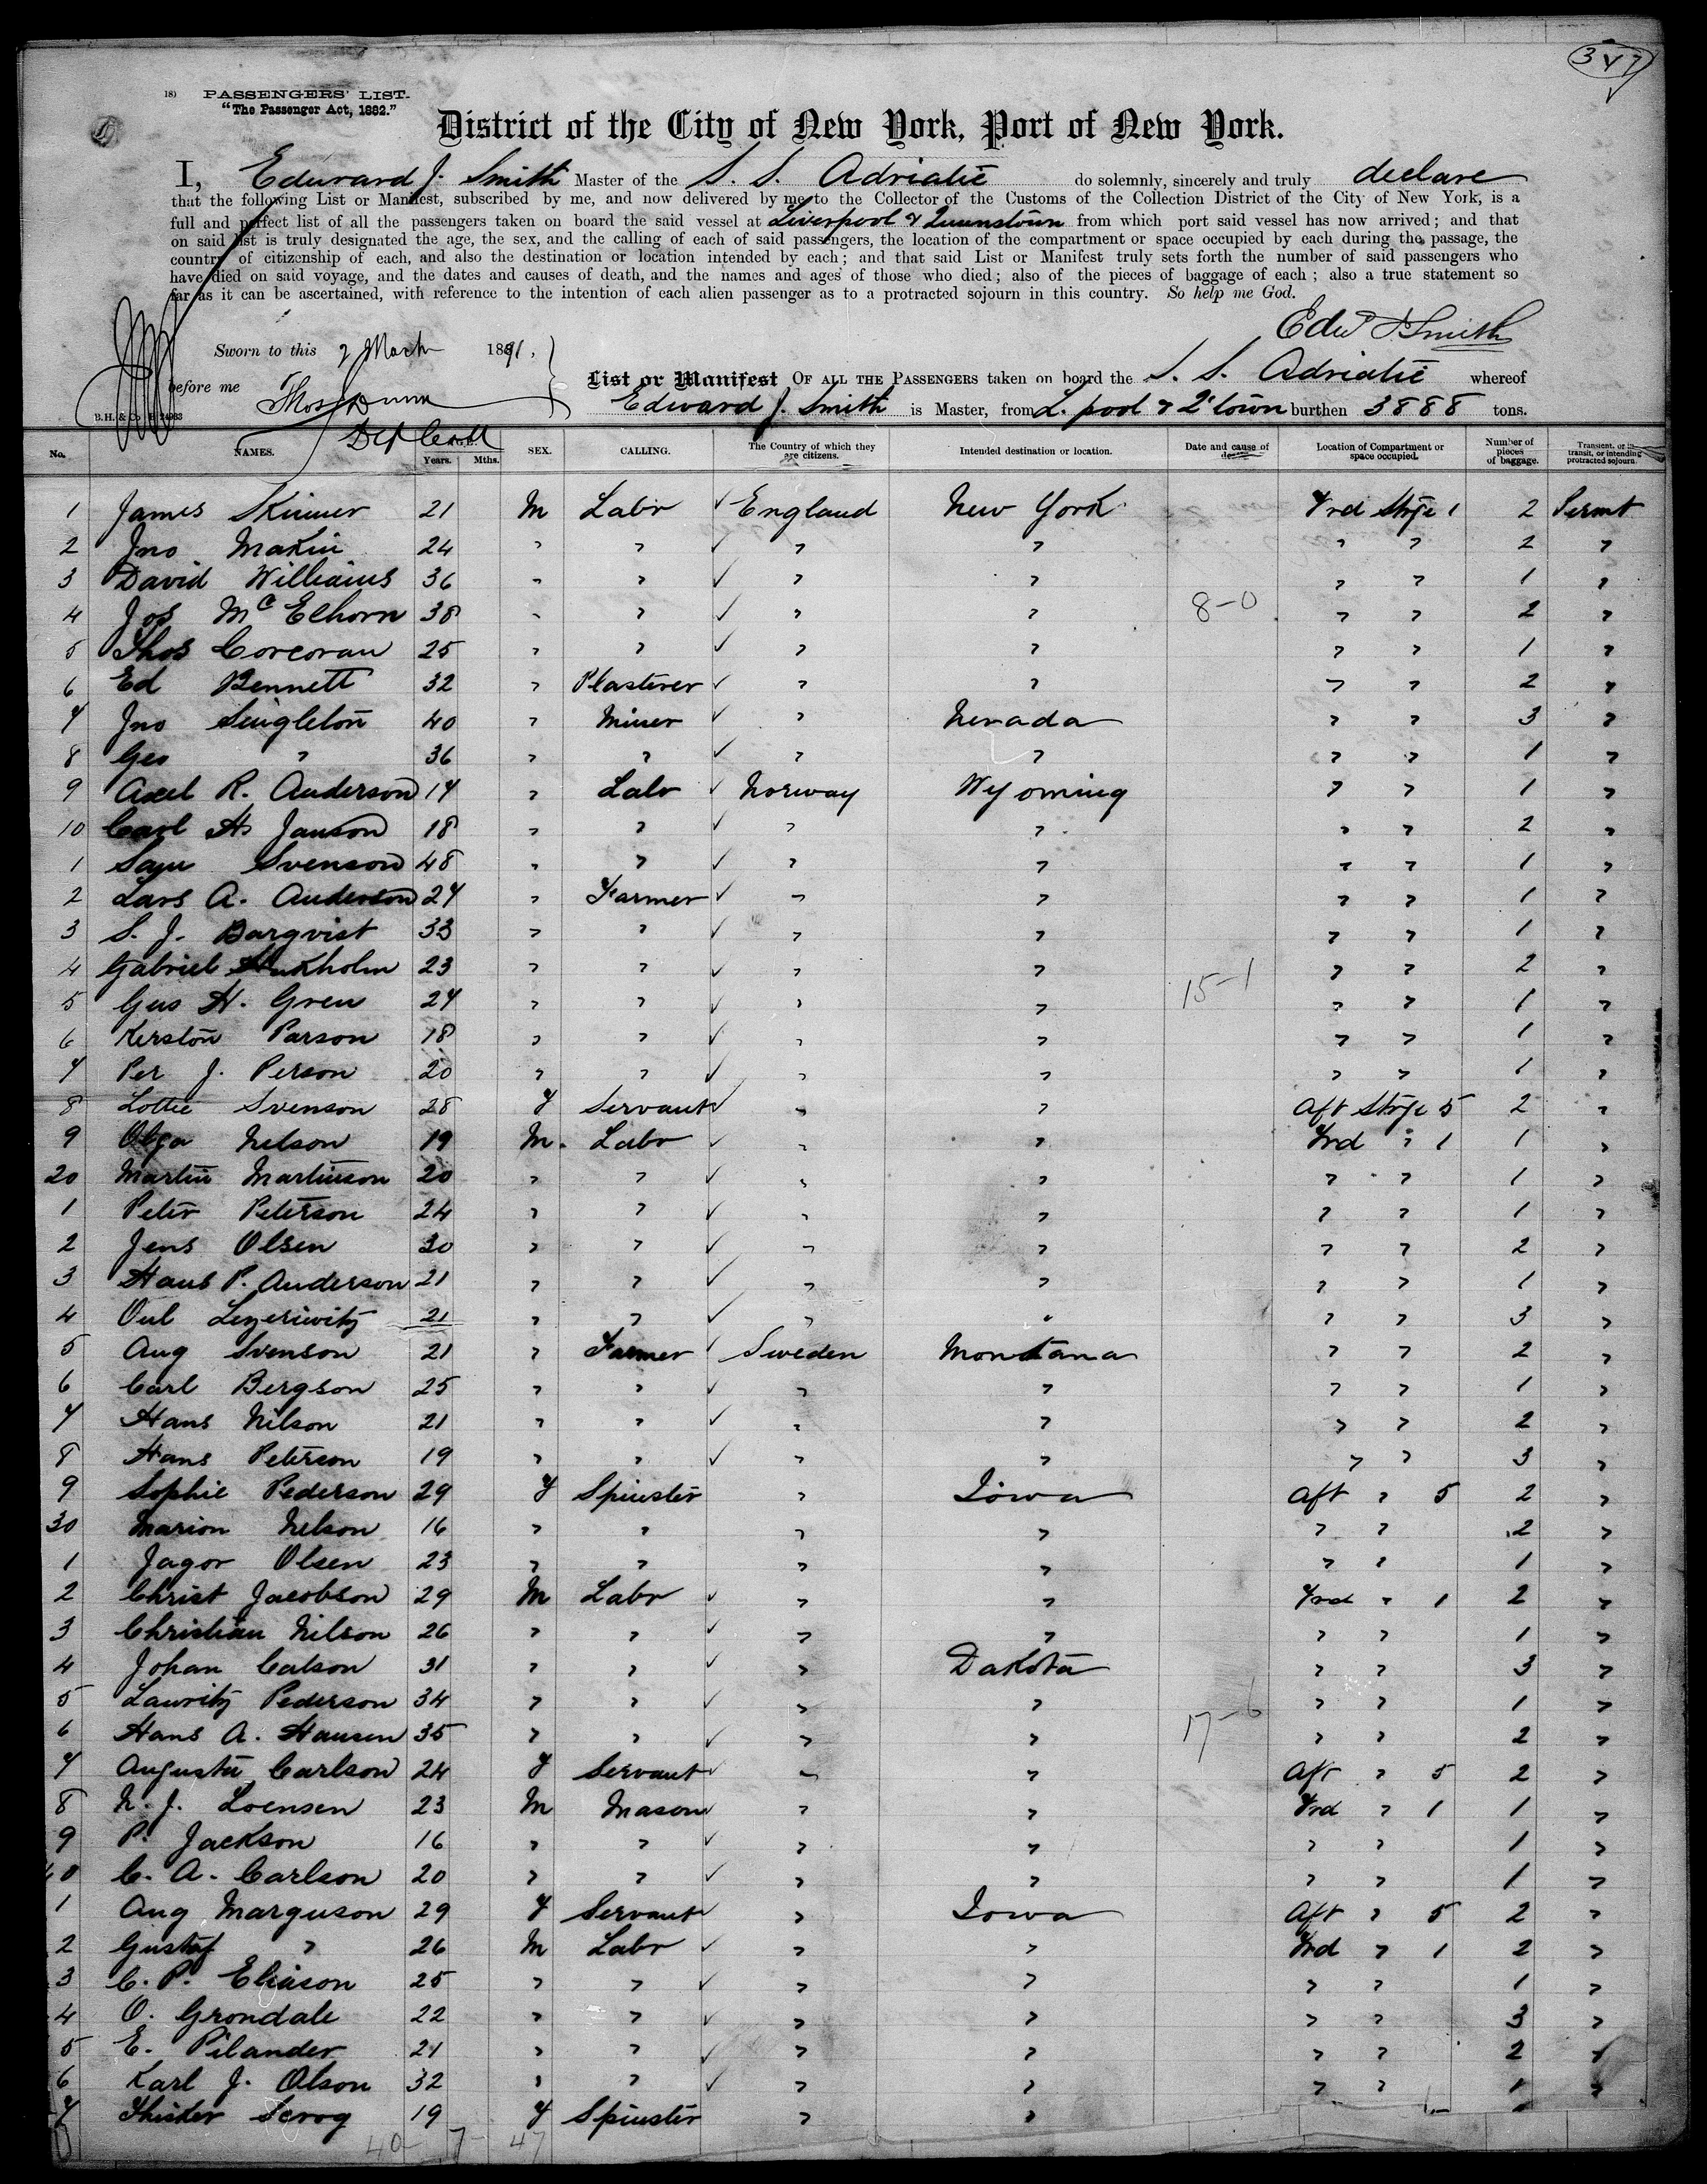 3v7
18) PASSENGERS' LIST.
"The Passenger Act, 1882."
District of the City of New York, Port of New York.
I, Edward J. Smith Master of the S. S. Adriatic do solemnly, sincerely and truly declare
that the following List or Manifest, subscribed by me, and now delivered by me to the Collector of the Customs of the Collection District of the City of New York, is a
full and perfect list of all the passengers taken on board the said vessel at Liverpool & Queenstown from which port said vessel has now arrived; and that
on said list is truly designated the age, the sex, and the calling of each of said passengers, the location of the compartment or space occupied by each during the passage, the
country of citizenship of each, and also the destination or location intended by each; and that said List or Manifest truly sets forth the number of said passengers who
have died on said voyage, and the dates and causes of death, and the names and ages of those who died; also of the pieces of baggage of each; also a true statement so
far as it can be ascertained, with reference to the intention of each alien passenger as to a protracted sojourn in this country. So help me God.
Edwd J Smith
Sworn to this 2 March 1891,
before me Thos Dunn
List or Manifest OF ALL THE PASSENGERS taken on board the S. S. Adriatic whereof
Edward J. Smith is Master, from L.pool & Q'town burthen 3888 tons.
B.H. & Co
No. NAMES. AGE. Years. Mths. SEX. CALLING. The Country of which they are citizens. Intended destination or location. Date and cause of death. Location of Compartment or space occupied. Number of pieces of baggage. Transient, or in transit, or intending protracted sojourn.
1 James Skinner 21 M Labr ✓ England New York Frd Stge 1 2 Permt
2 Jno Makin 24 " " ✓ " " " " 2 "
3 David Williams 36 " " ✓ " " " " 1 "
4 Jos McElhorn 38 " " ✓ " " 8-0 " " 2 "
5 Thos Corcoran 25 " " ✓ " " " " 1 "
6 Ed Bennett 32 " Plasterer ✓ " " " " 2 "
7 Jno Singleton 40 " Miner ✓ " Nevada " " 3 "
8 Geo " 36 " " ✓ " " " " 1 "
9 Axel R. Anderson 17 " Labr ✓ Norway Wyoming " " 1 "
10 Carl H. Janson 18 " " ✓ " " " " 2 "
1 Sam Svenson 48 " " ✓ " " " " 1 "
2 Lars A. Anderson 27 " Farmer ✓ " " " " 1 "
3 S. J. Bargvist 33 " " ✓ " " " " 1 "
4 Gabriel 23 " " ✓ " " " " 2 "
5 Gus H. Gren 27 " " ✓ " " 15-1 " " 1 "
6 Kerston Parson 18 " " ✓ " " " " 1 "
7 Per J. Person 20 " " ✓ " " " " 1 "
8 Lottie Svenson 28 F Servant ✓ " " Aft Stge 5 2 "
9 Olga Nelson 19 M. Labr ✓ " " Frd " 1 1 "
20 Martin Martinson 20 " " ✓ " " " " 1 "
1 Peter Peterson 24 " " ✓ " " " " 1 "
2 Jens Olsen 30 " " ✓ " " " " 2 "
3 Hans P. Anderson 21 " " ✓ " " " " 1 "
4 21 " " ✓ " " " " 3 "
5 Aug Svenson 21 " Farmer ✓ Sweden Montana " " 2 "
6 Carl Bergson 25 " " ✓ " " " " 1 "
7 Hans Nilson 21 " " ✓ " " " " 2 "
8 Hans Peterson 19 " " ✓ " " " " 3 "
9 Sophie Pederson 29 F Spinster " Iowa Aft " 5 2 "
30 Marion Nelson 16 " " " " " " 2 "
1 Jagor Olsen 23 " " " " " " 1 "
2 Christ Jacobson 29 M Labr ✓ " " Frd " 1 2 "
3 Christian Nilson 26 " " ✓ " " " " 1 "
4 Johan Calson 31 " " ✓ " Dakota " " 3 "
5 Lauritz Pederson 34 " " ✓ " " " " 1 "
6 Hans A. Hansen 35 " " ✓ " " 17-6 " " 2 "
7 Augusta Carlson 24 F Servant ✓ " " Aft " 5 2 "
8 N. J. Loensen 23 M Mason ✓ " " Frd " 1 1 "
9 P. Jackson 16 " " ✓ " " " " 1 "
40 C. A. Carlson 20 " " ✓ " " " " 1 "
1 Aug Marguson 29 F Servant ✓ " Iowa Aft " 5 2 "
2 Gustaf " 26 M Labr ✓ " " Frd " 1 2 "
3 C. P. Eliason 25 " " ✓ " " " " 1 "
4 O. Grondale 22 " " ✓ " " " " 3 "
5 E. Pilander 21 " " ✓ " " " " 2 "
6 Karl J. Olson 32 " " ✓ " " " " 1 "
7 19 F Spinster " "
40- 7- 47